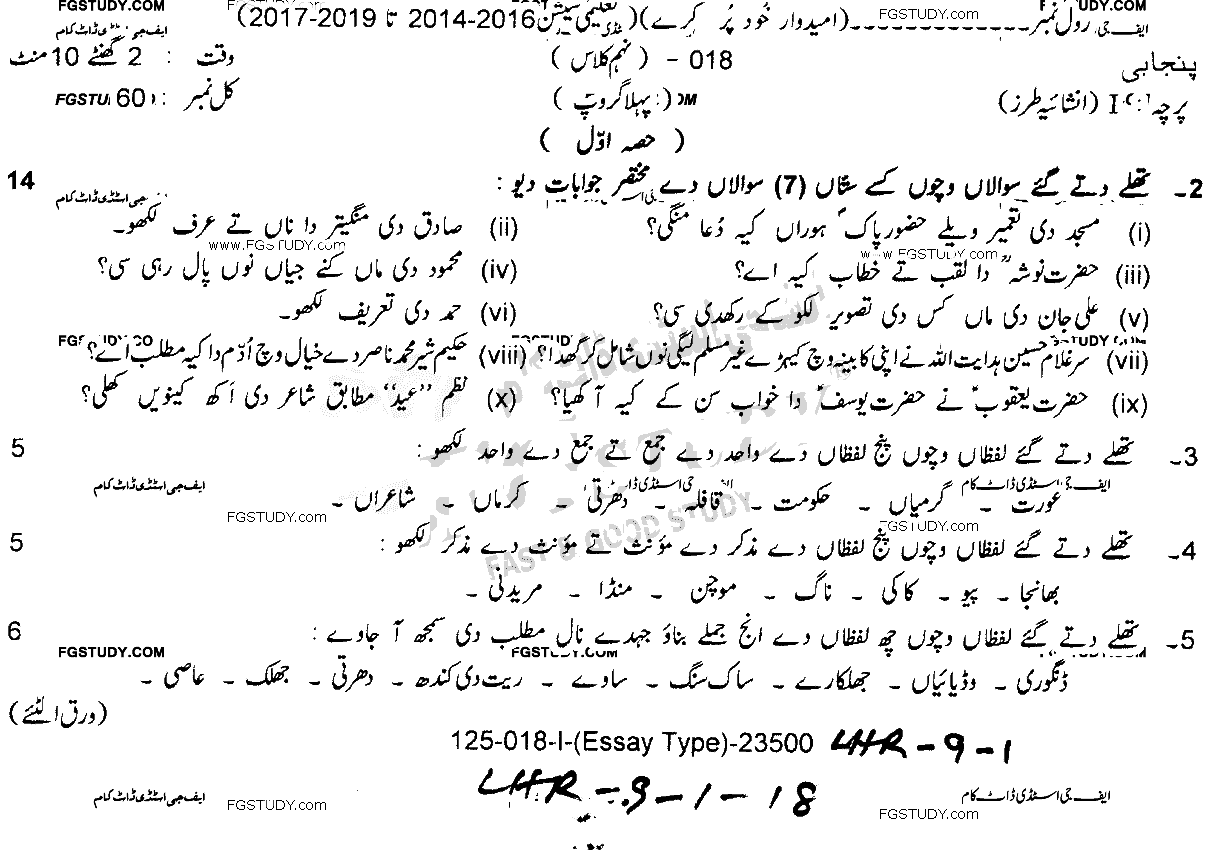 FGSTUDY.COM FGSTUDY.COM
ایف جی رول نمبر ـــــــــــــ (امیدوار خود پُر کرے) (تعلیمی سیشن 2016-2014 تا 2019-2017) ایف جی اسٹڈی ڈاٹ کام
پنجابی 018 - (نہم کلاس) وقت : 2 گھنٹے 10 منٹ
پرچہ : I (انشائیہ طرز) (پہلا گروپ) کل نمبر : 60
( حصہ اوّل )
2ـ تھلے دتے گئے سوالاں وچوں کسے ستّاں (7) سوالاں دے مختصر جوابات دیو : 14
ایف جی اسٹڈی ڈاٹ کام
(i) مسجد دی تعمیر ویلے حضور پاکؐ ہوراں کیہ دُعا منگی؟ (ii) صادق دی منگیتر دا ناں تے عرف لکھو۔
www.FGSTUDY.com www.FGSTUDY.com
(iii) حضرت نوشہؒ دا لقب تے خطاب کیہ اے؟ (iv) محمود دی ماں کنے جیاں نوں پال رہی سی؟
(v) علی جان دی ماں کس دی تصویر لکو کے رکھدی سی؟ (vi) حمد دی تعریف لکھو۔
(vii) سر غلام حسین ہدایت اللہ نے اپنی کابینہ وچ کیہڑے غیر مسلم لیگی نوں شامل کر گھدا؟ (viii) حکیم شیر محمد ناصر دے خیال وچ اُدّم دا کیہ مطلب اے؟
(ix) حضرت یعقوبؑ نے حضرت یوسفؑ دا خواب سن کے کیہ آکھیا؟ (x) نظم ”عید“ مطابق شاعر دی اَکھ کینویں کھلی؟
3ـ تھلے دتے گئے لفظاں وچوں پنج لفظاں دے واحد دے جمع تے جمع دے واحد لکھو : 5
ایف جی اسٹڈی ڈاٹ کام جی اسٹڈی ڈاٹ کام ایف جی اسٹڈی ڈاٹ کام
عورت ـ گرمیاں ـ حکومت ـ قافلہ ـ دھرتی ـ کرماں ـ شاعراں ـ
FGSTUDY.com FGSTUDY.com
FAST & GOOD STUDY
4ـ تھلے دتے گئے لفظاں وچوں پنج لفظاں دے مذکر دے مؤنث تے مؤنث دے مذکر لکھو : 5
بھانجا ـ پیو ـ کاکی ـ ناگ ـ موچن ـ منڈا ـ مریدنی ـ
5ـ تھلے دتے گئے لفظاں وچوں چھ لفظاں دے انج جملے بناؤ جہدے نال مطلب دی سمجھ آ جاوے : 6
FGSTUDY.COM FGSTUDY.COM
ڈنگوری ـ وڈیائیاں ـ جھلکارے ـ ساک سنگ ـ ساوے ـ ریت دی کندھ ـ دھرتی ـ جھلک ـ عاصی ـ
(ورق الٹئے)
125-018-I-(Essay Type)-23500 LHR-9-1
LHR-9-1-18
ایف جی اسٹڈی ڈاٹ کام ایف جی اسٹڈی ڈاٹ کام
FGSTUDY.com FGSTUDY.com